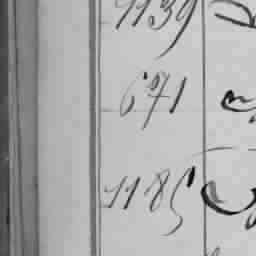 1139
671
1185